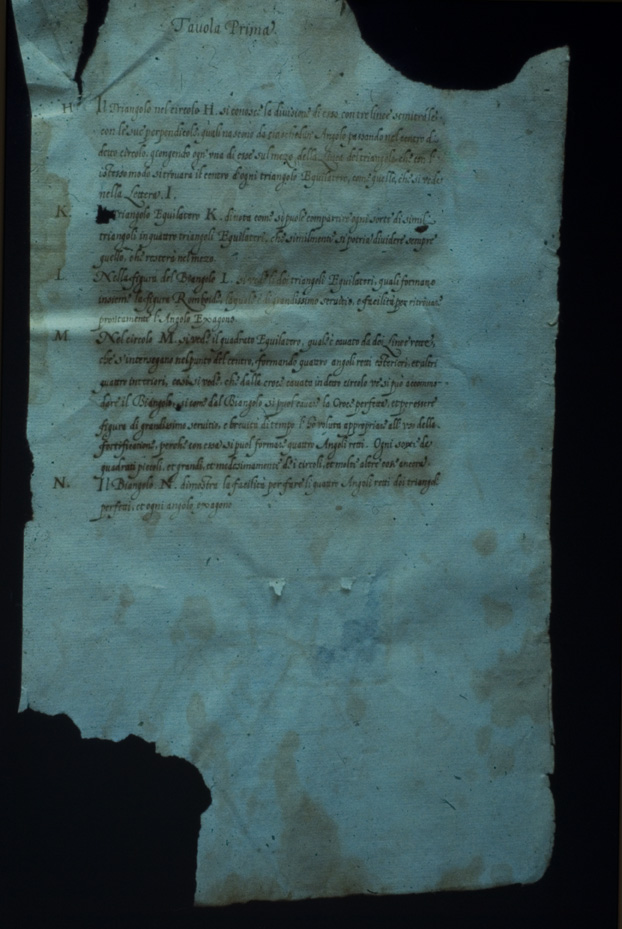 Tavola Prima
H. Il Triangolo nel circolo H. si conosce la divisione di esso con tre linee
con le sue perpendicoli, quali nascono da ciascheduno Angolo passando nel centro di
detto circolo, giongendo ogn'una di esse sul mezo della linea del triangolo, che con l'
istesso modo si trovarà il centro d'ogni triangolo Equilatero, come quello, che si vede
nella Lettera I.
K. triangolo Equilatero K. dinota come si puole compartire ogni sorte di simil.
triangoli in quattro triangoli Equilateri, che similmente si potria dividere sempre
quello, che resterà nel mezo.
L. Nella figura del Biangolo L. si vede li dei triangoli Equilateri, quali formano
insieme la figura Romboide, la quale è di grandissimo servitio, e facilità per ritrovar
prontamente l'Angolo Exagono.
M. Nel circolo M. si vede il quadrato Equilatero, qual'è cavato da doi Linee rette,
che s'intersegano nel punto del centro, formando quattro angoli retti esteriori, et altri
quattro interiori, così si vede, che dalla croce cavata in detto circolo ve si può accomo-
dare il Biangolo, si come dal Biangolo si puol cavar la Croce perfetta, et per essere
figura di grandissimo servitio, e brevità di tempo l'hò voluta appropriare all'uso della
fortificatione, perche con essa si puol formar quattro Angoli retti. Ogni sorte de
quadrati piccoli, et grandi, et medesimamente de i circoli, et molte altre cose ancora.
N. Il Biangolo N. dimostra la facilità per fare li quattro Angoli retti dei triangol
perfetti, et ogni angolo exagono